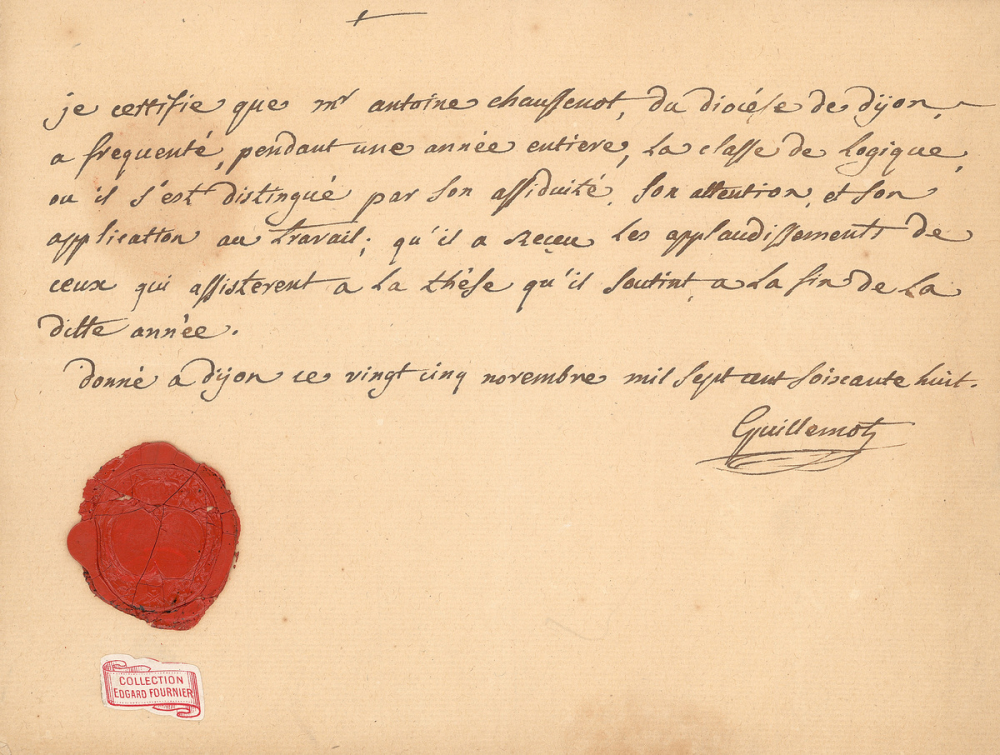 je certifie que mr antoine chaussenot, du diocèse de dijon,
a frequenté, pendant une année entiere, la classe de logique,
ou il s'est distingué par son assiduité, son attention, et son
application au travail; qu'il a reçeu les applaudissements de
ceux qui assisterent a la thèse qu'il soutint a la fin de la
ditte année.
donné a dijon ce vingt cinq novembre mil sept cent soixante huit.
Guillemot
COLLECTION
EDGARD FOURNIER